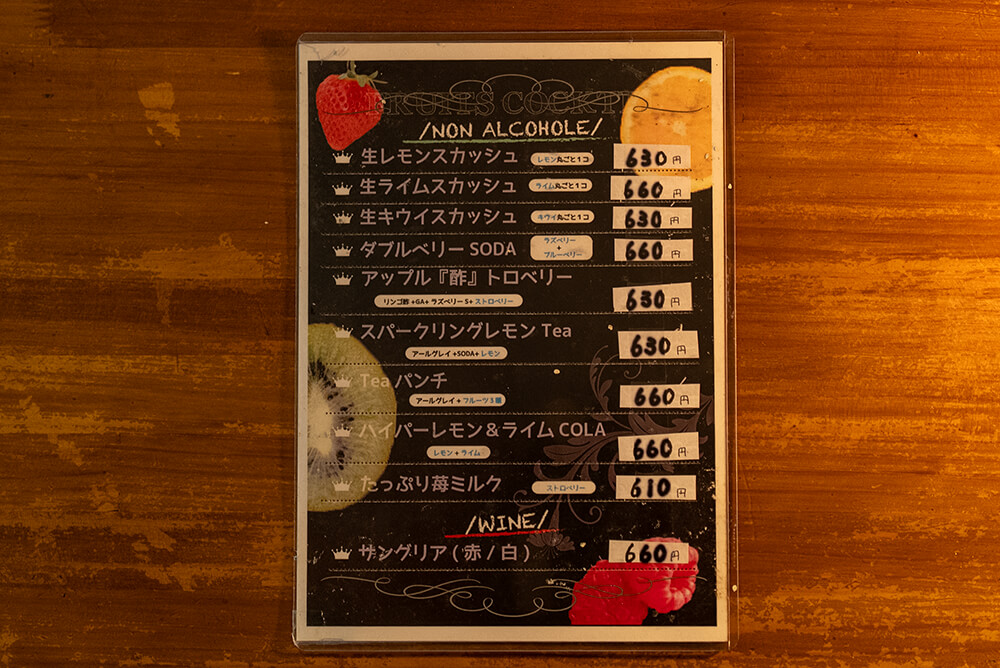 FRUITS COCKT
/NON ALCOHOLE/
生レモンスカッシュ レモン丸ごと1コ 630円
生ライムスカッシュ ライム丸ごと1コ 660円
生キウイスカッシュ キウイ丸ごと1コ 630円
ダブルベリー SODA ラズベリー + ブルーベリー 660円
アップル『酢』トロベリー
リンゴ酢 +GA+ ラズベリー S+ ストロベリー 630円
スパークリングレモン Tea
アールグレイ +SODA+ レモン 630円
Tea パンチ
アールグレイ + フルーツ3種 660円
ハイパーレモン&ライム COLA
レモン + ライム 660円
たっぷり苺ミルク ストロベリー 610円
/WINE/
サングリア ( 赤 / 白 ) 660円